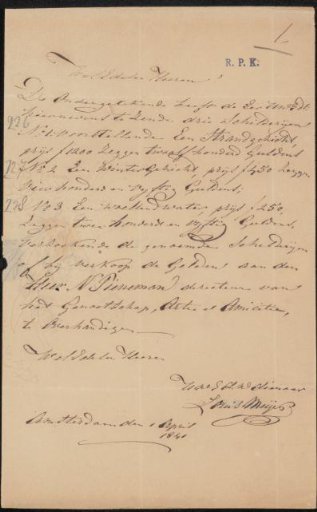 1.
R. P. K.
WelEdele Heeren
De Ondergetekende heeft de Eer UwEdt
226
te zenden drie schilderijen
No 1 voorstellende Een Strandgezicht,
prijs ƒ1200 zegge twaalfhonderd Guldens
227 No 2 Een Wintergezicht, prijs ƒ450 zegge
vierhonderd en vijftig Guldens,
228 No 3 Een water prijs ƒ250
zegge twee honderd en vijftig Guldens,
de genoemde Schilderijen
bij verkoop de Gelden aan den
Heer N Pieneman directeur van
het Genootschap, Arti et Amicitiae,
te overhandigen
WelEdele Heeren
UwEd. D.W. Dienaar
Louis Meijer
Amsterdam den 1 April
1840